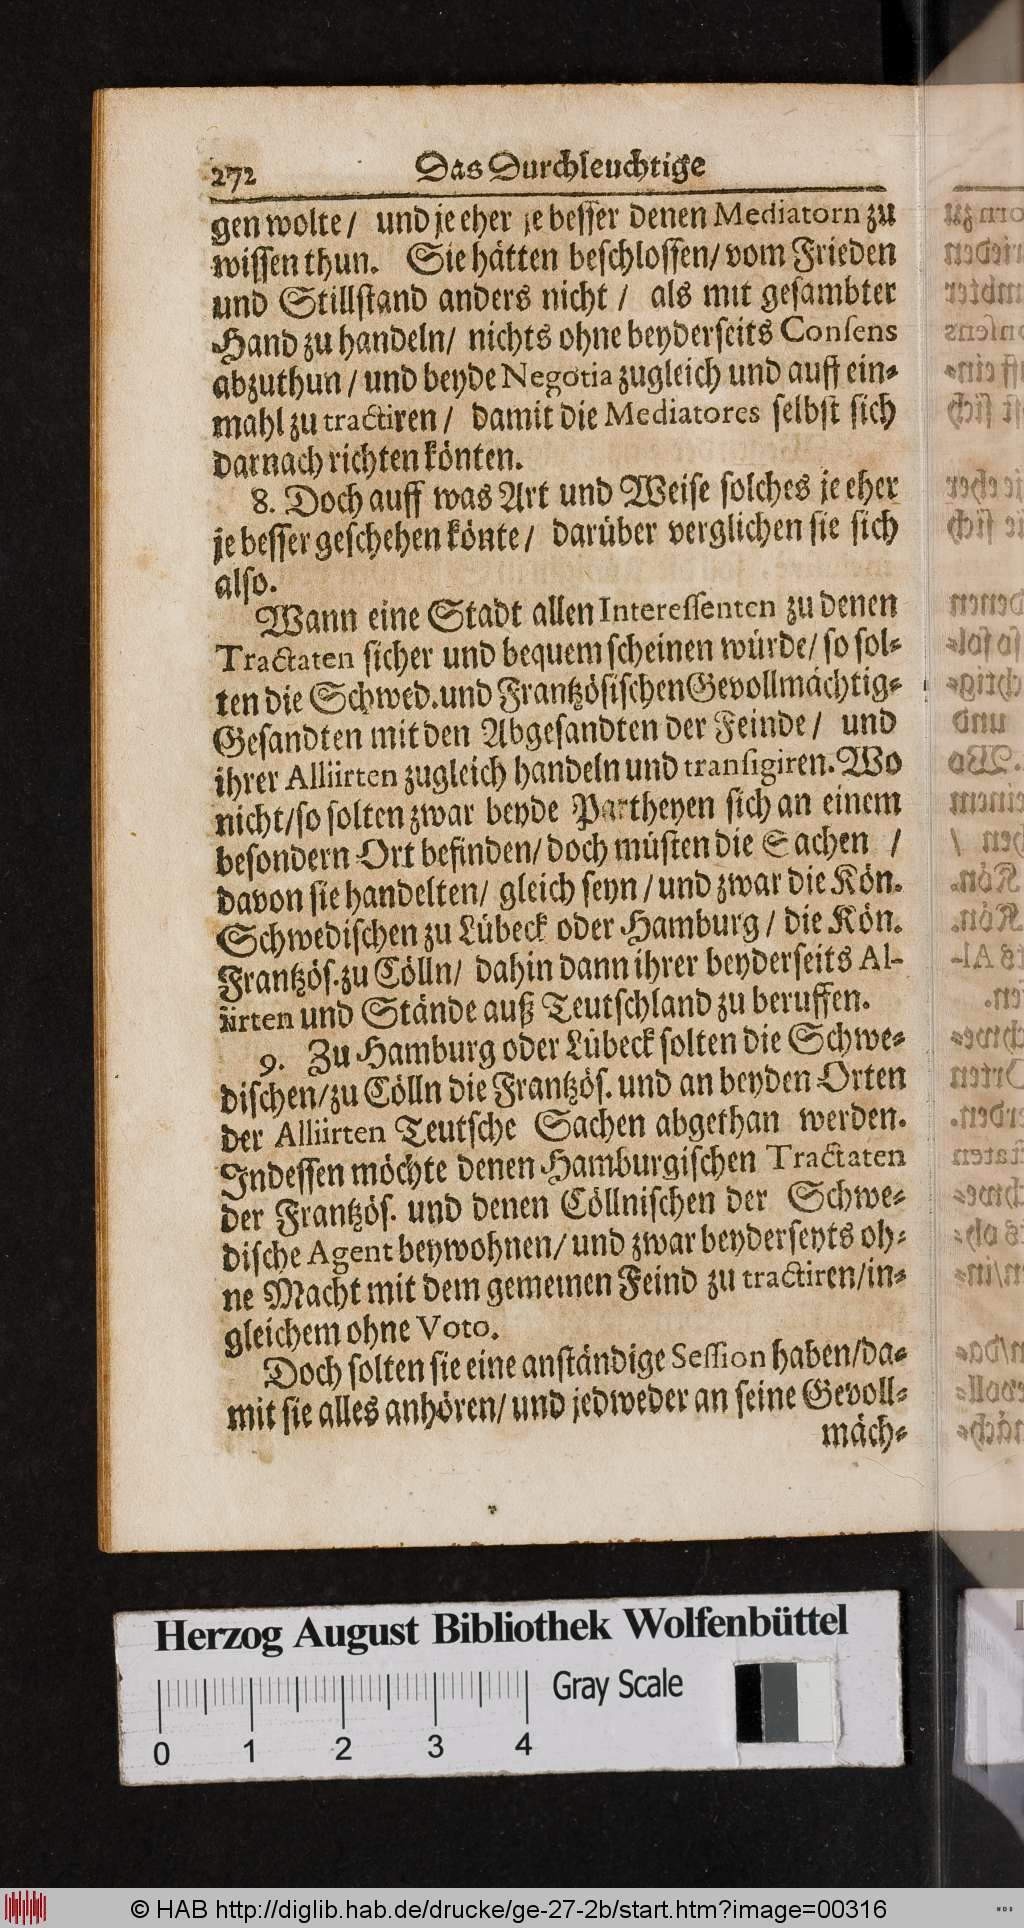 272 Das Durchleuchtige
gen wolte / und je eher je besser denen Mediatorn zu
wissen thun. Sie hätten beschlossen / vom Frieden
und Stillstand anders nicht / als mit gesambter
Hand zu handeln / nichts ohne beyderseits Consens
abzuthun / und beyde Negotia zugleich und auff ein-
mahl zu tractiren / damit die Mediatores selbst sich
darnach richten könten.
8. Doch auff was Art und Weise solches je eher
je besser geschehen könte / darüber verglichen sie sich
also.
Wann eine Stadt allen Interessenten zu denen
Tractaten sicher und bequem scheinen würde / so sol-
ten die Schwed. und Frantzösischen Gevollmächtig-
Gesandten mit den Abgesandten der Feinde / und
ihrer Alliirten zugleich handeln und transigiren. Wo
nicht / so solten zwar beyde Partheyen sich an einem
besondern Ort befinden / doch müsten die Sachen /
davon sie handelten / gleich seyn / und zwar die Kön.
Schwedischen zu Lübeck oder Hamburg / die Kön.
Frantzös. zu Cölln / dahin dann ihrer beyderseits Al-
liirten und Stände auß Teutschland zu beruffen.
9. Zu Hamburg oder Lübeck solten die Schwe-
dischen / zu Cölln die Frantzös. und an beyden Orten
der Alliirten Teutsche Sachen abgethan werden.
Indessen möchte denen Hamburgischen Tractaten
der Frantzös. und denen Cöllnischen der Schwe-
dische Agent beywohnen / und zwar beyderseyts oh-
ne Macht mit dem gemeinen Feind zu tractiren / in-
gleichem ohne Voto.
Doch solten sie eine anständige Session haben / da-
mit sie alles anhören / und jedweder an seine Gevoll-
mäch-
Herzog August Bibliothek Wolfenbüttel
Gray Scale
0 1 2 3 4
© HAB http://diglib.hab.de/drucke/ge-27-2b/start.htm?image=00316